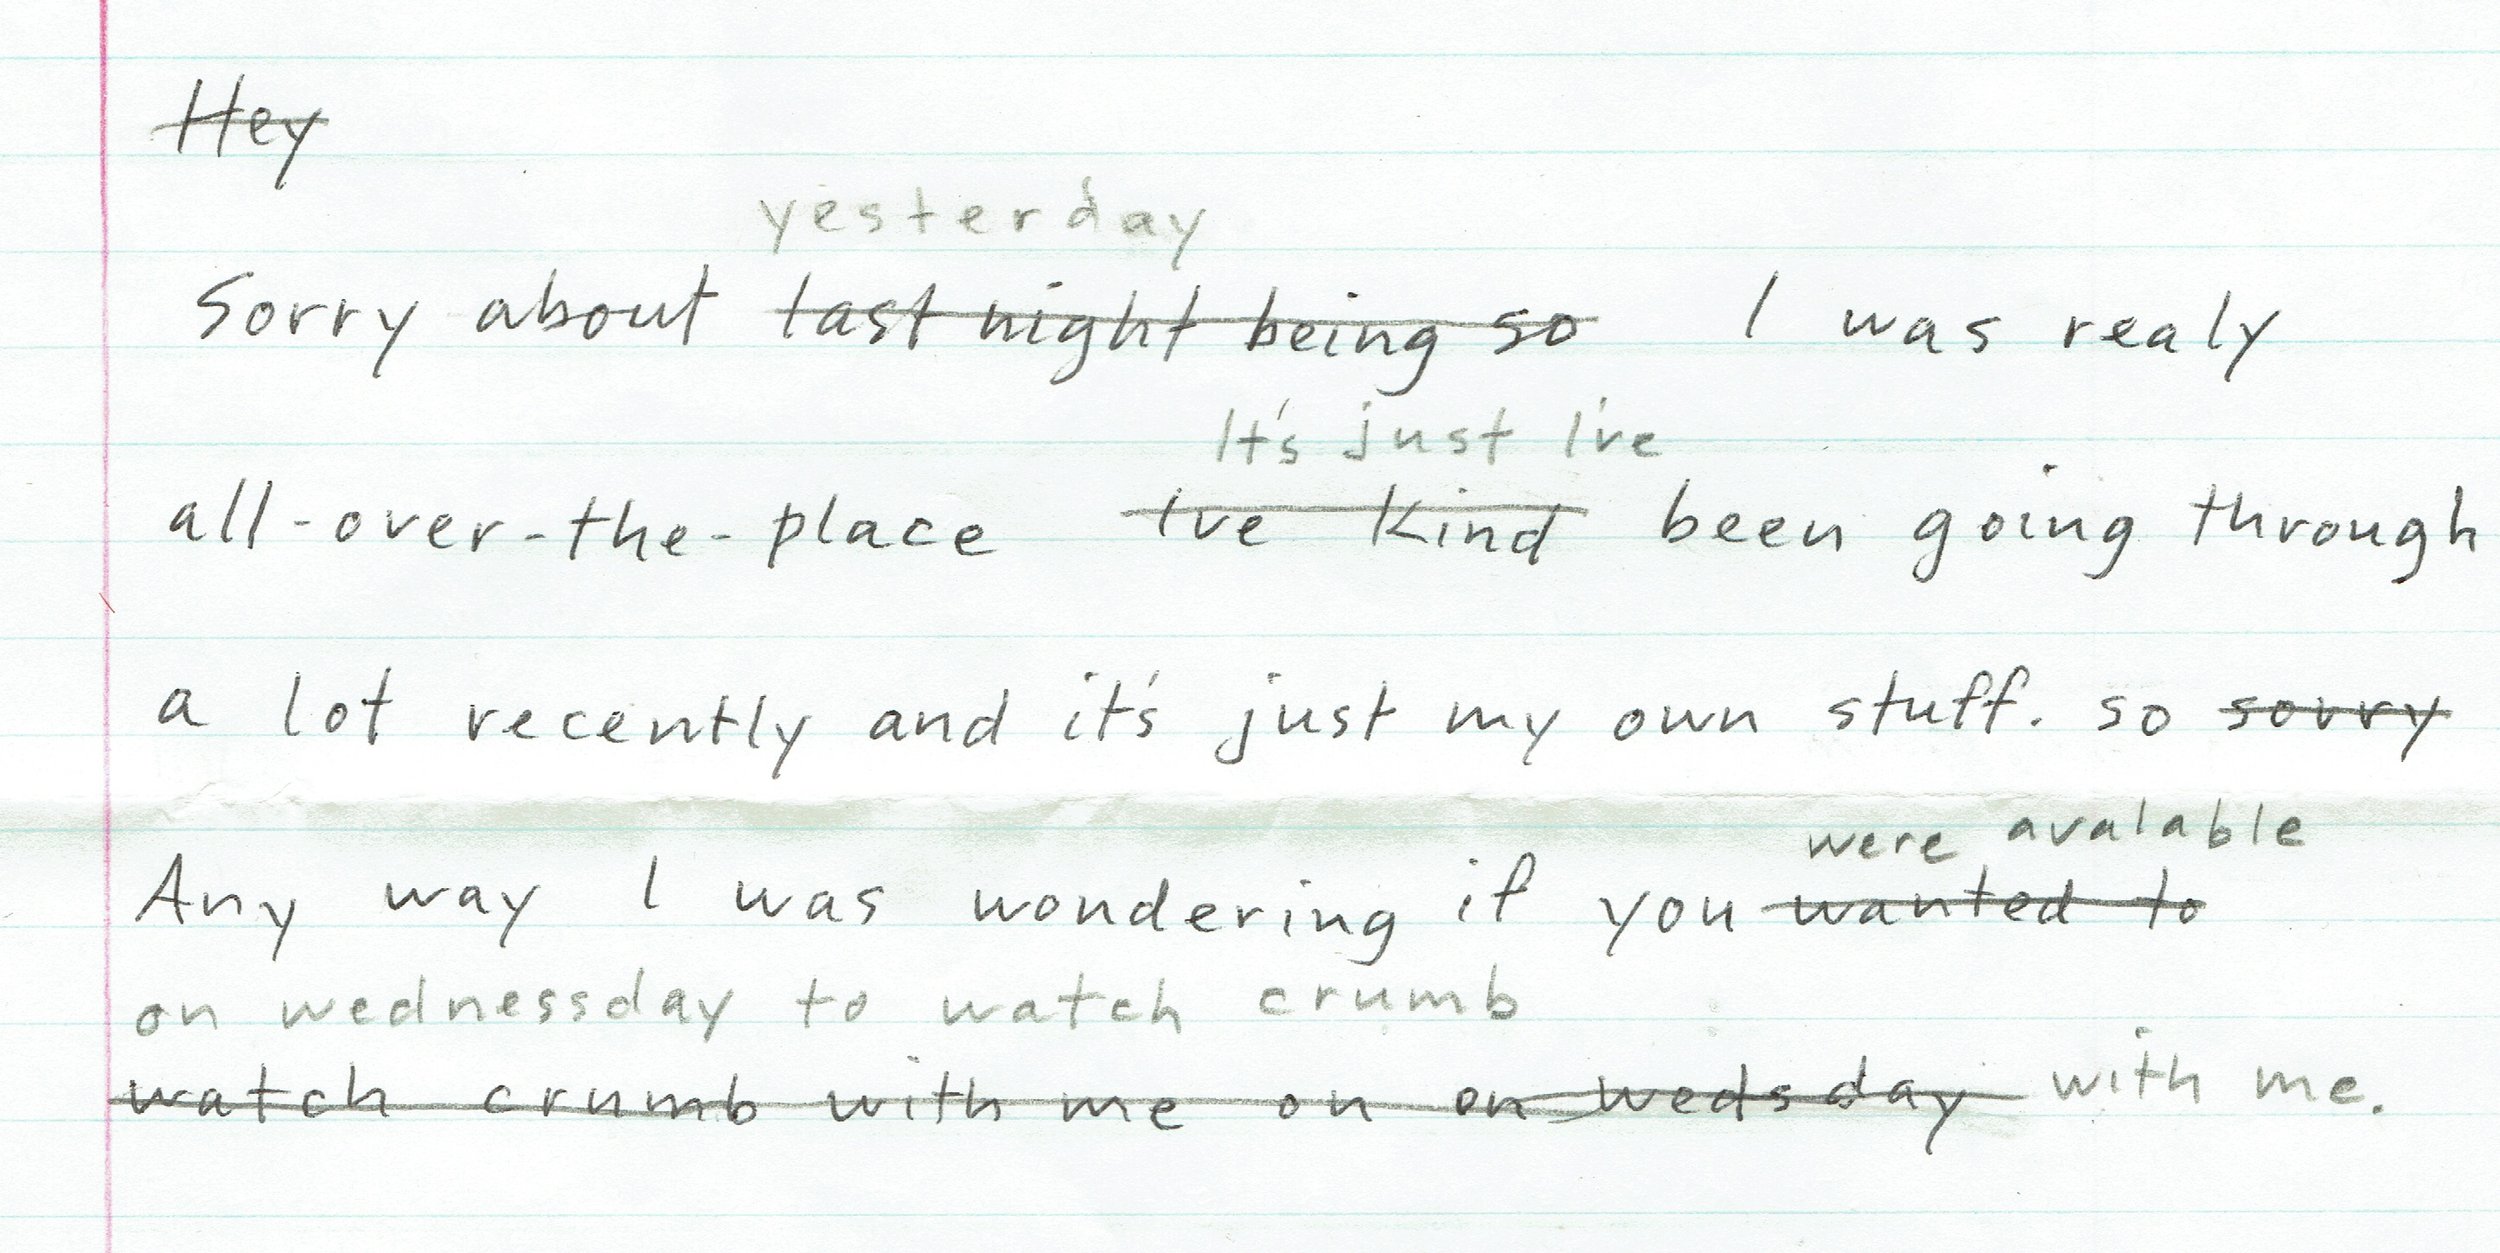 Hey
yesterday
Sorry about last night being so I was realy
It's just I've
all-over-the-place Ive kind been going through
a lot recently and it's just my own stuff. so sorry
were avalable
Any way I was wondering if you wanted to
on wednessday to watch crumb
watch crumb with me on on wedsday with me.